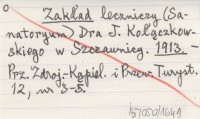 Zakład leczniczy (Sa-
natoryum) Dra J. Kołączkow-
skiego w Szczawnicy. 1913. -
Prz. Zdroj.-Kąpiel. i Przew. Turyst.
12, nr 3-5.